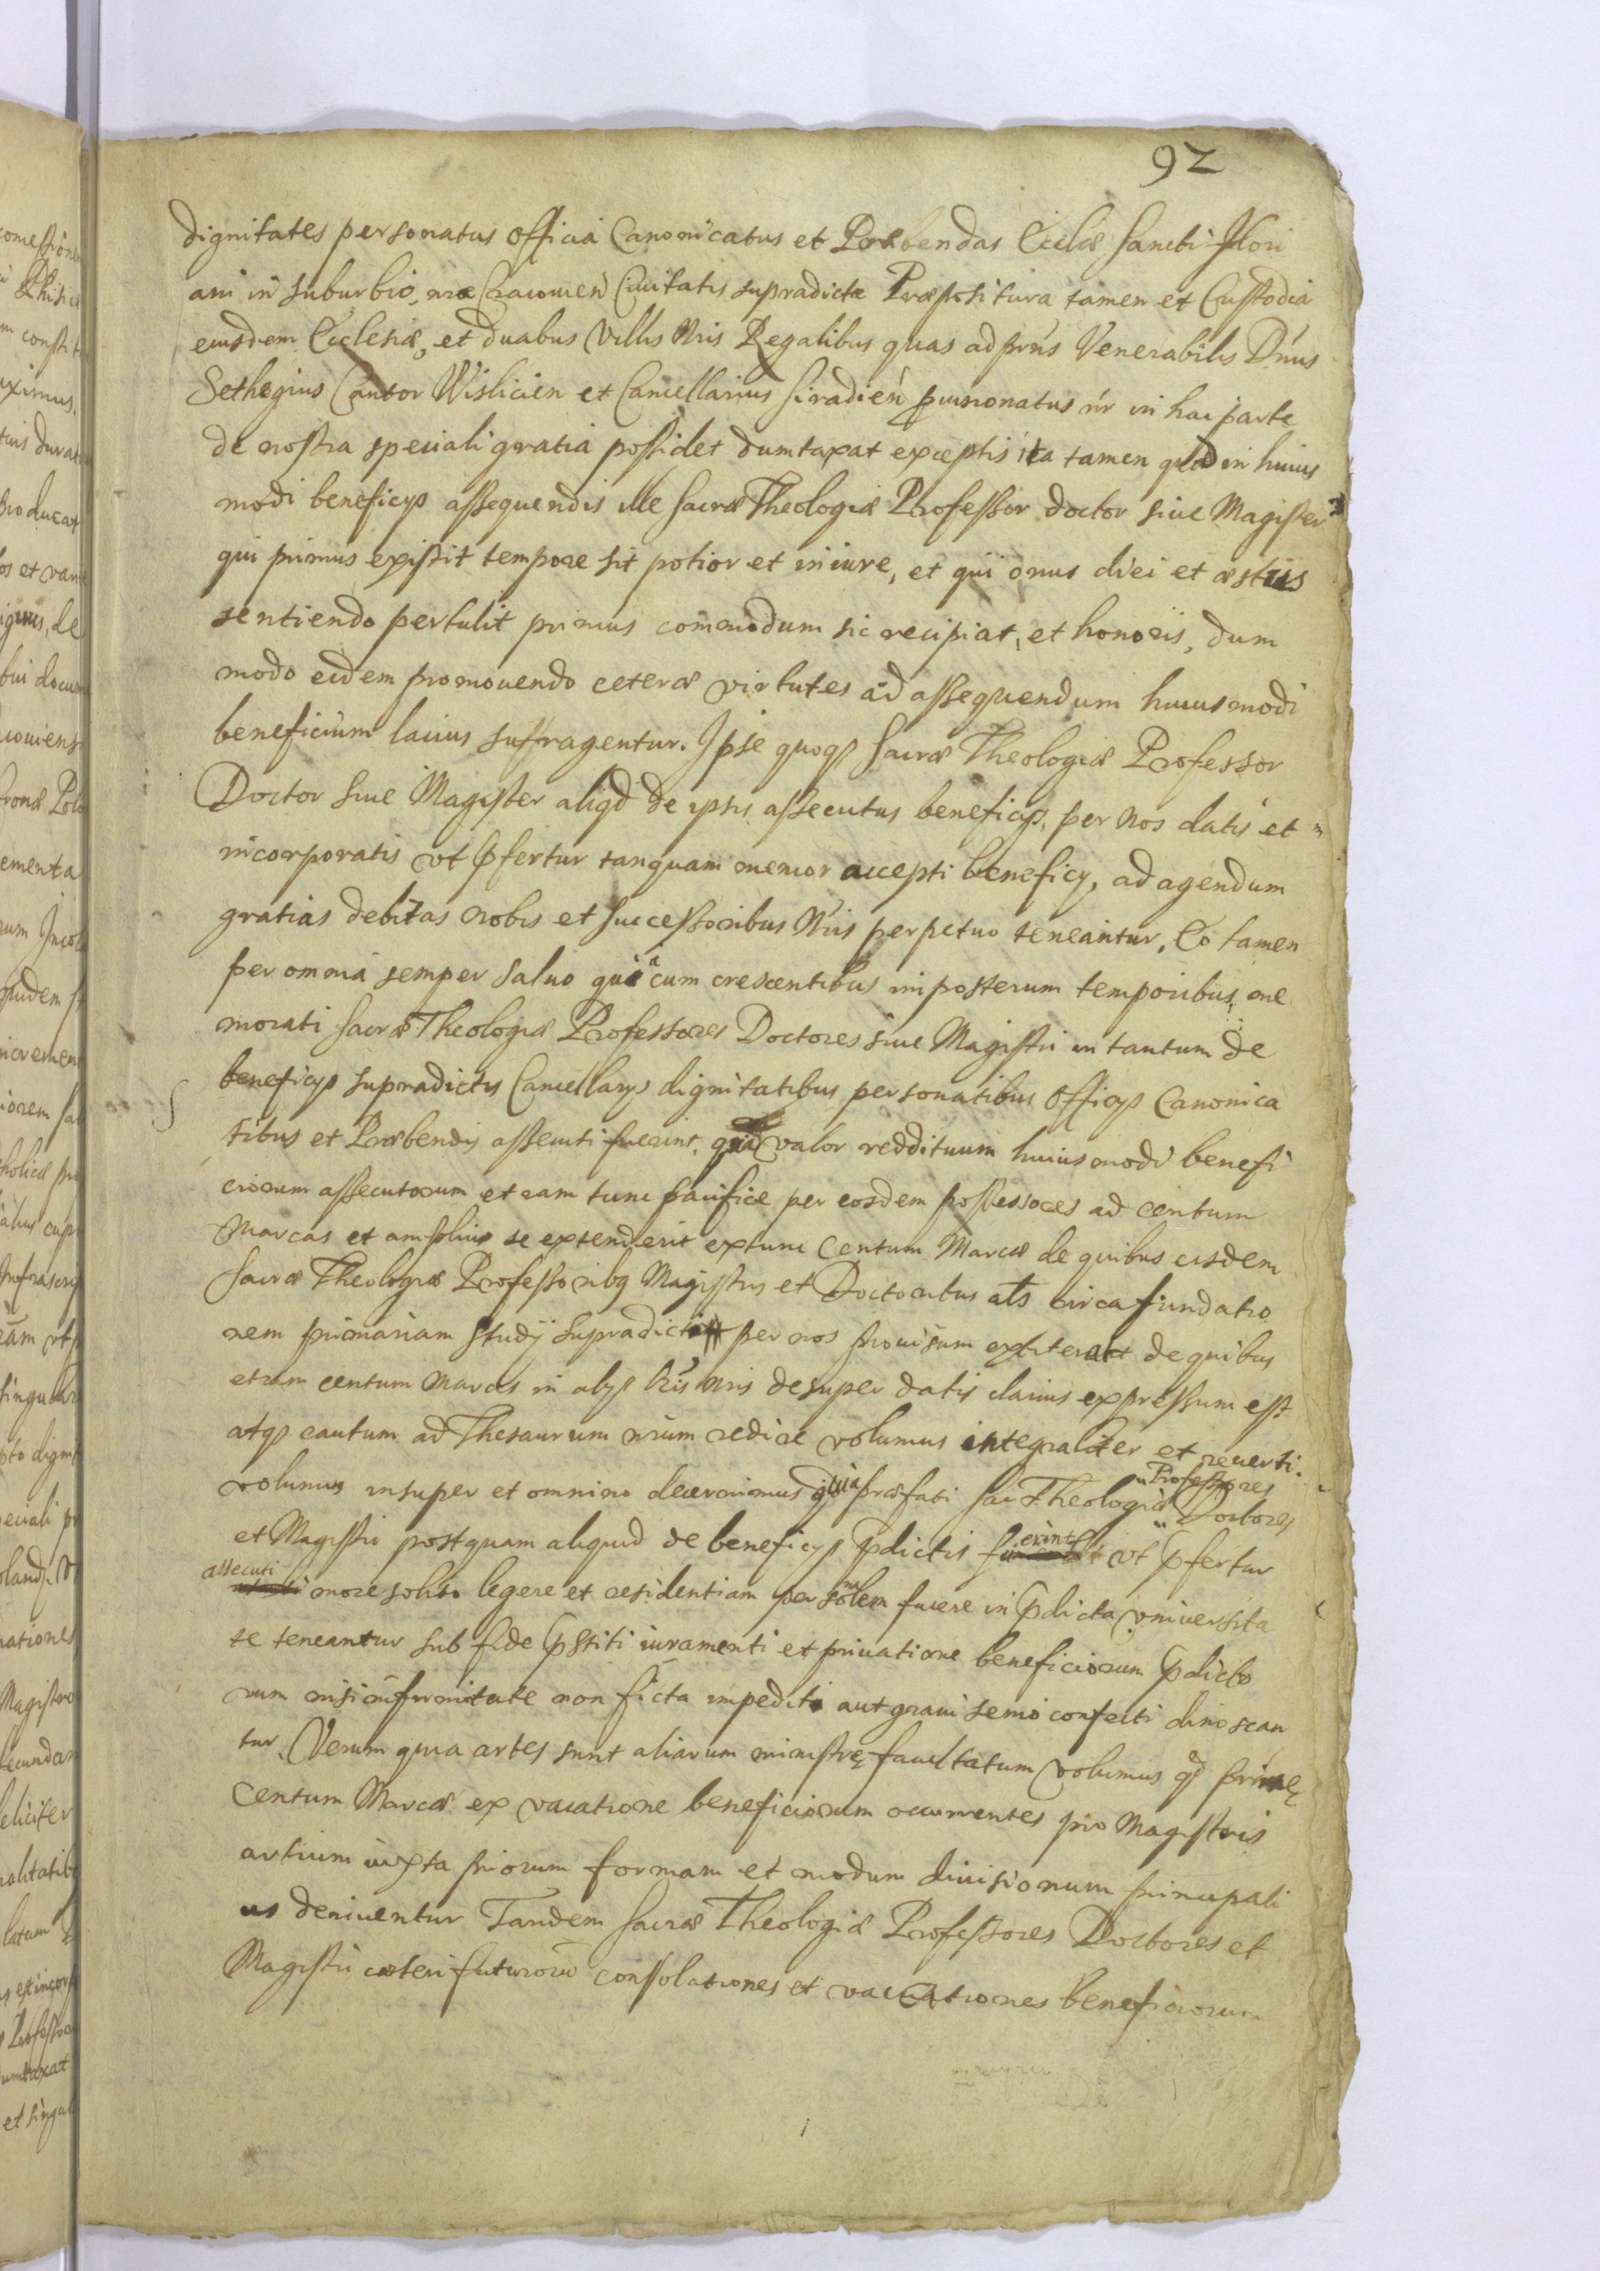 92
dignitates personatus officia Canonicatus et Præbendas Ecclæ Sancti Flori
ani in suburbio nræ Cracouien Ciuitatis supradictæ Præpositura tamen et Custodia
eiusdem Ecclesiæ, et duabus Villis Nris Regalibus quas ad prns Venerabilis Dnus
Sethegius Cantor Wislicien et Cancellarius Siradien nr in hac parte
de nostra speciali gratia possidet dumtaxat exceptis ita tamen quod in huius
modi beneficijs assequendis ille Sacræ Theologiæ Professor Doctor siue Magister
qui primus existit tempore sit potior et in iure, et qui onus diei et æstus
sentiendo pertulit primus commodum sic recipiat, et honoris, dum
modo eidem promouendo ceteræ virtutes ad assequendum huiusmodi
beneficium lacius suffragentur. Ipse quoq Sacræ Theologiæ Professor
Doctor siue Magister aliqd de ipsis assecutus beneficijs, per nos datis et in
incorporatis vt pfertur tanquam memor accepti beneficij, ad agendum
gratias debitas nobis et successoribus Nris perpetuo teneantur, Eo tamen
per omnia semper saluo quia cum crescentibus imposterum temporibus me
morati Sacræ Theologiæ Professores Doctores siue Magistri in tantum de
beneficijs supradictis Cancellarijs dignitatibus personatibus officijs Canonica
tibus et Præbendis assecuti fuerint, quod valor reddituum huiusmodi benefi
ciorum assecutorum etiam tunc pacifice per eosdem possessores ad centum
Marcas et amplius se extenderit extunc Centum Marcæ de quibus eisdem
Sacræ Theologiæ Professoribq Magistris et Doctoribus als circa fundatio
nem primariam Studij supradicti per nos prouisum extiterat de quibus
etiam centum Marcis in alijs lris nris desuper datis clarius expressum est
atq cautum ad Thesaurum nrum redire volumus integraliter et reuerti.
volumus insuper et omnino decernimus quia præfati Sac Theologiæ Professores Doctores
et Magistri postquam aliquid de beneficijs pdictis fuerint vt pfertur
assecuti more solito legere et residentiam personalem facere in pdicta vniuersita
te teneantur sub fide pstiti iuramenti et priuatione beneficiorum pdicto
rum nisi infirmitate non ficta impediti aut graui senio confecti dinoscan
tur. Verum quia artes sunt aliarum ministrę facultatum volumus qd primę
Centum Marcæ ex vacatione beneficiorum occurrentes pro Magistris
artium iuxta priorum formam et modum diuisionum principali
us deriuentur Tandem Sacræ Theologiæ Professores Doctores et
Magistri cæteri futuroru consolationes et vacationes beneficiorum